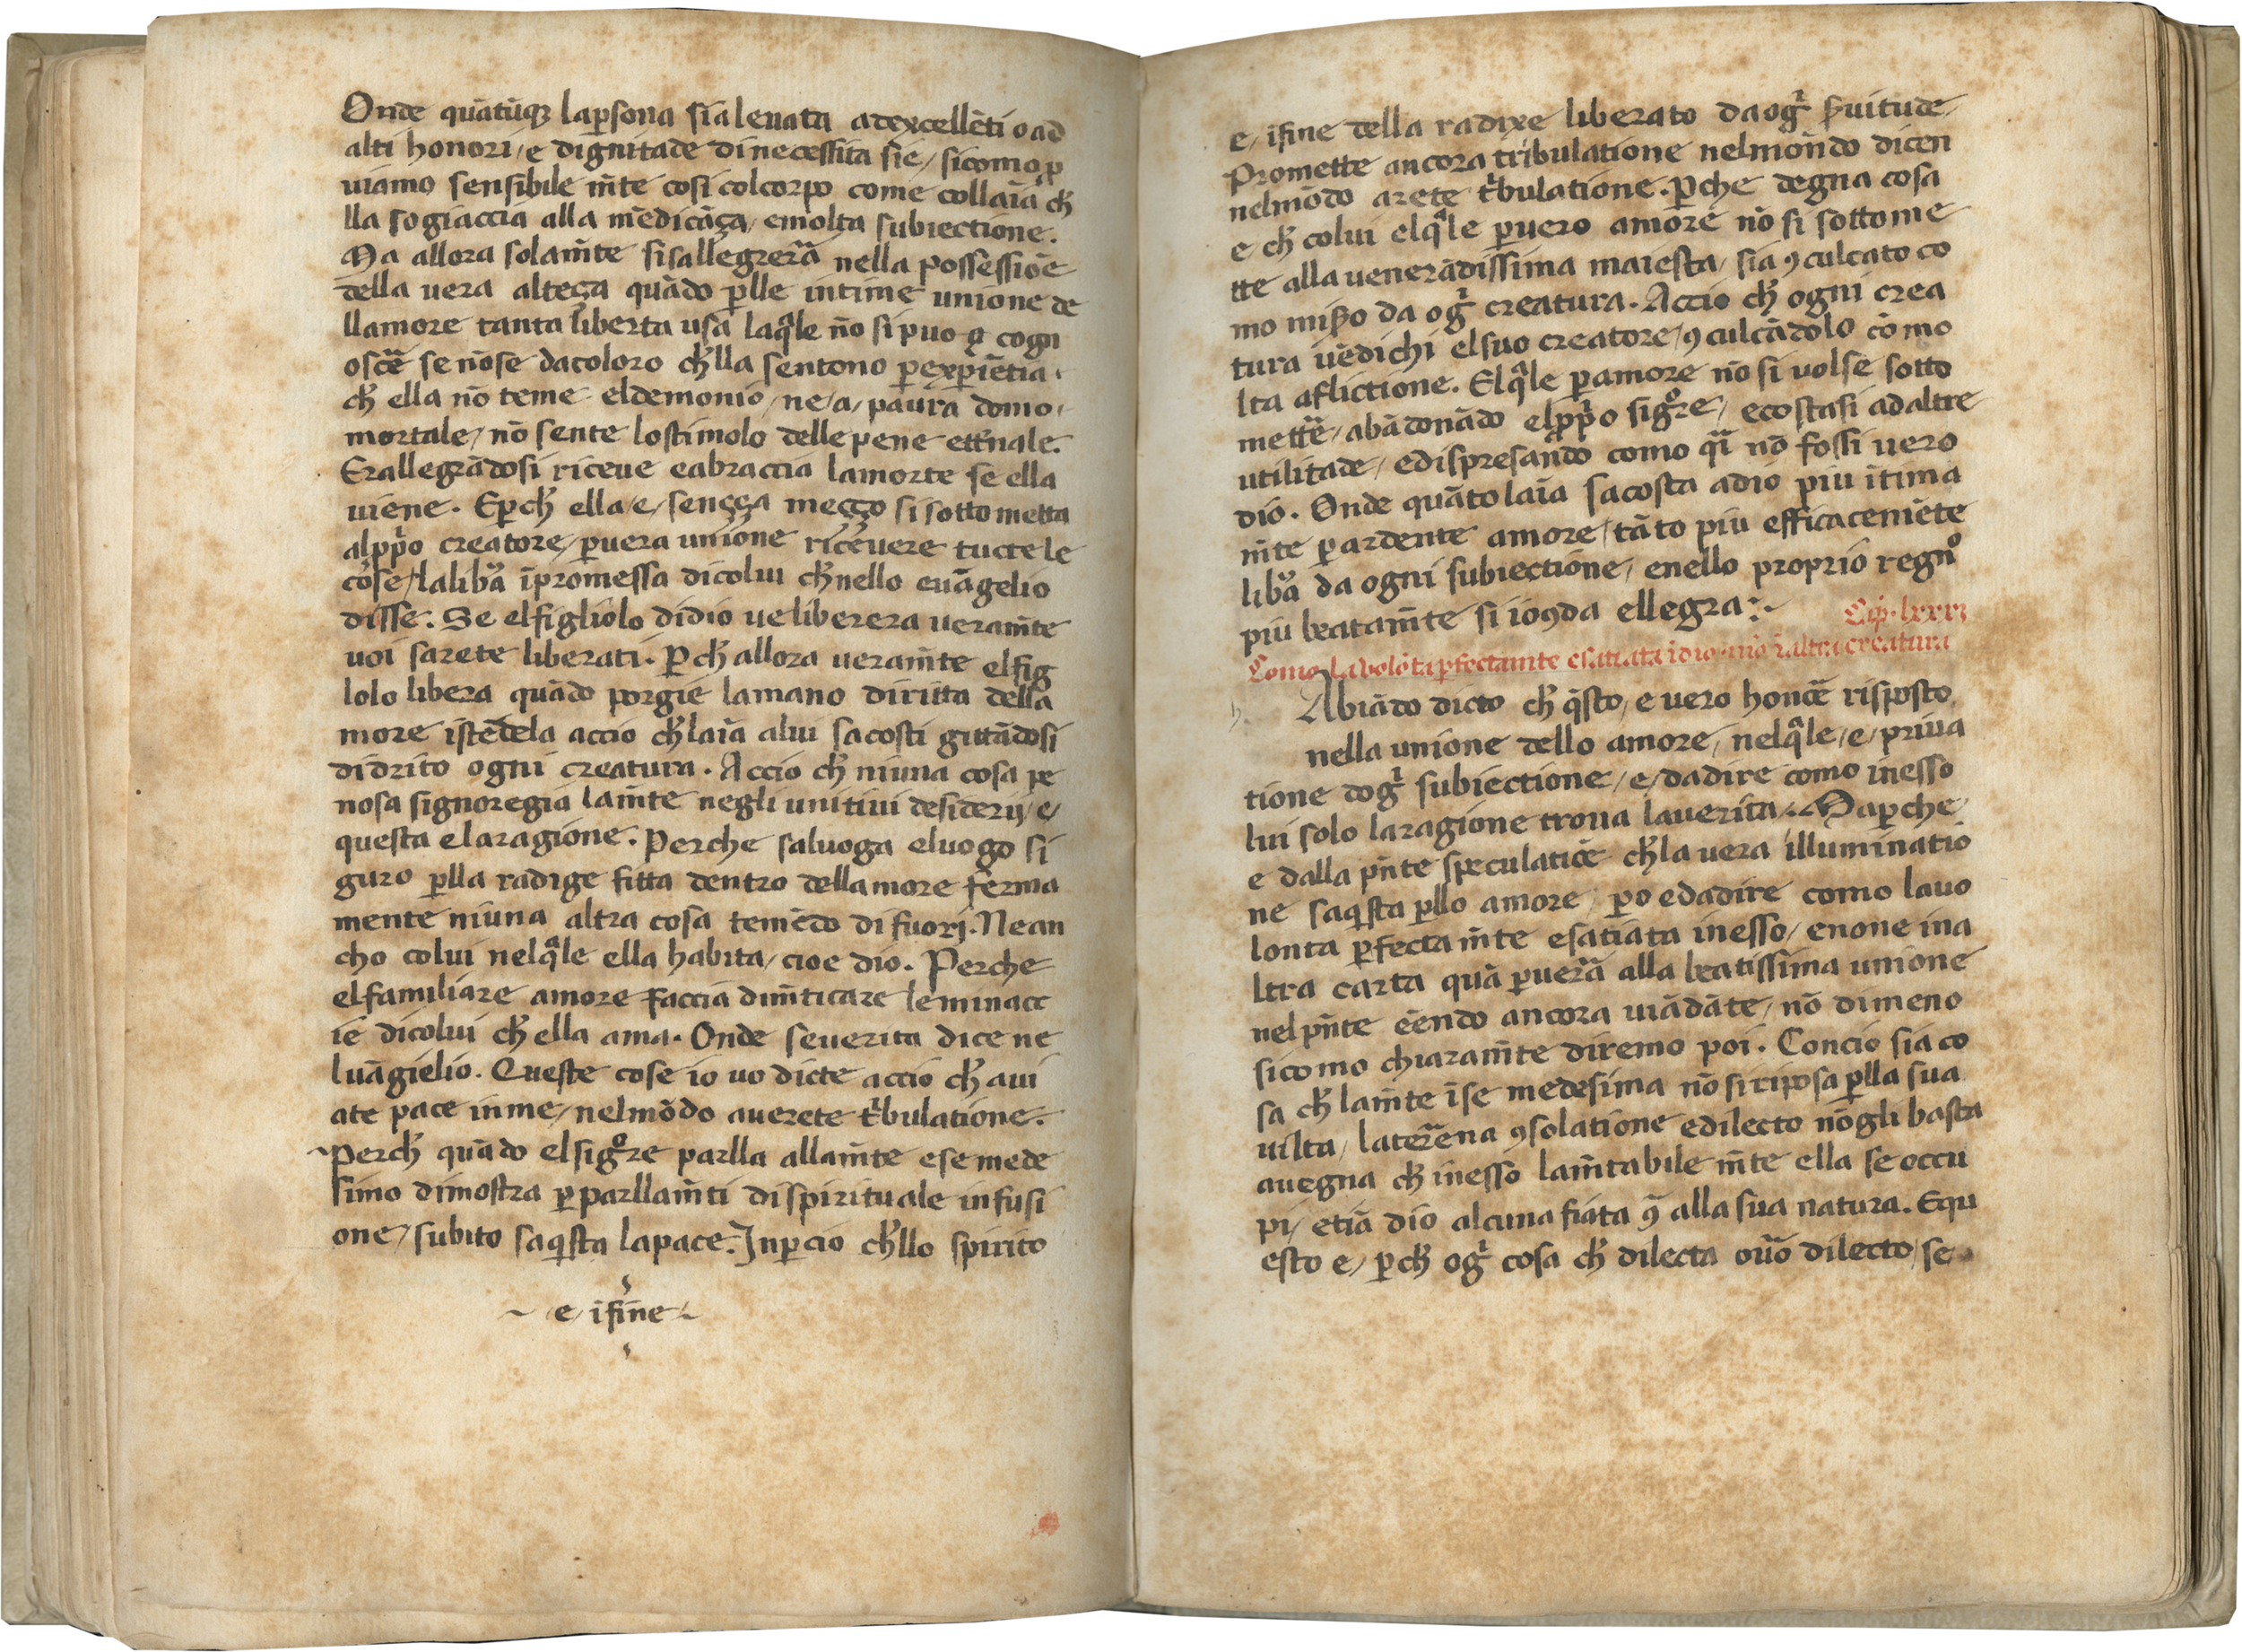 Onde quātūqꝫ laꝑsona sia leuata adexcellēti o ad
alti honori / e dignitade di necessita sie / sicomo ꝓ
uiamo sensibile m̄te cosi colcorpo come collaīa cħ
lla sogiaccia alla mēdicāça / emolta subiectione.
Ma allora solam̄te sisallegrera nella possessiōe
della uera alteça quādo ꝑlle intime unione de
llamore tanta liberta usa laq̄le nō si puo cogn
oscē se nōse dacoloro cħlla sentono ꝑexꝑiētia
cħ ella nō teme eldemonio / ne / a / paura domo
mortale / nō sente lostimolo delle pene etꝰnale.
Erallegrādosi riceue eabraccia lamorte se ella
uiene. Eꝑcħ ella / e / sença meço si sotto metta
alꝓpo creatore / ꝑuera unione riceuere tucte le
cose / laliba īpromessa dicolui cħnello euāgelio
disse: Se elfigliolo didio ueliberera ueram̄te
uoi sarete liberati. Pcħ allora ueram̄te elfig
lolo libera quādo porgie lamano diritta della
more istēdela accio cħlaīa alui sacosti gittādosi
didrito ogni creatura. Accio cħ niuna cosa pe
nosa signoregia lam̄te negli unitiui desiderij / e /
questa elaragione. Perche saluoga eluogo si
guro ꝑlla radige fitta dentro dellamore ferma
mente niuna altra cosa temēdo di fuori. Nean
cho colui nelq̄le ella habita / cioe dio. Perche
elfamiliare amore faccia dim̄ticare leminacc
ie dicolui cħ ella ama. Onde seuerita dice ne
luāgielio. Queste cose io uo dicte accio cħ aui
ate pace inme / nelmōdo auerete tⁱbulatione.
Percħ quādo elsigᵒre parlla allam̄te e se mede
simo dimostra ꝑparllam̄ti di spirituale infusi
one / subito saqⁱsta lapace. Inꝑcio cħllo spirito
e / ifine
e / ifine della radixe liberato da ogⁱ ẜuitude
Promette ancora tribulatione nelmōndo dicen
nelmōdo arete tⁱbulatione. Pche degna cosa
e cħ colui elq̄le ꝑuero amore nō si sottome
tte alla uenerādissima maiesta / sia ꝯculcato co
mo mißo da ogⁱ creatura. Accio cħ ogni crea
tura uēdichi elsuo creatore / ꝯculcādolo cō mo
lta aflictione. Elq̄le ꝑamore nō si uolse sotto
mettē / abādonādo elꝓpo sigᵒre / ecostasi ad altre
utilitade / edispresando como qⁱ nō fossi uero
dio. Onde quāto laīa sacosta adio piu ītima
m̄te ꝑardente amore / tāto piu efficacemēte
liba da ogni subiectione / enello proprio regnᵒ
piu beatam̄te si ioꝯda ellegra:
Cap. lxxxj
Como la volōta ꝑfectam̄te esatiata īdio nō ī altra creatura
Abiādo dicto cħ qⁱsto / e uero honoē risposto
nella unione dello amore / nelq̄le / e / priua
tione dogⁱ subiectione / e / dadire como inesso
lui solo laragione troua lauerita. Maꝑche
e dalla pn̄te speculatiōe cħla uera illuminatio
ne saqⁱsta ꝑllo amore / ꝑo edadire como lauo
lonta ꝑfecta m̄te esatiata inesso / enone ina
ltra carta quā ꝑuerā alla beatissima unione
nel pn̄te eēndo ancora uiādāte / nō dimeno
sicomo chiaram̄te diremo poi. Concio sia co
sa cħ lam̄te ī se medesima nō si riposa ꝑlla sua
uilta / laterrena ꝯsolatione edilecto nō gli basta
auegna cħ inesso lam̄tabile m̄te ella se occu
pi / etiā dio alcuna fiata ꝯ alla sua natura. Equ
esto e / ꝑcħ ogⁱ cosa cħ dilecta ouō dilecto / se